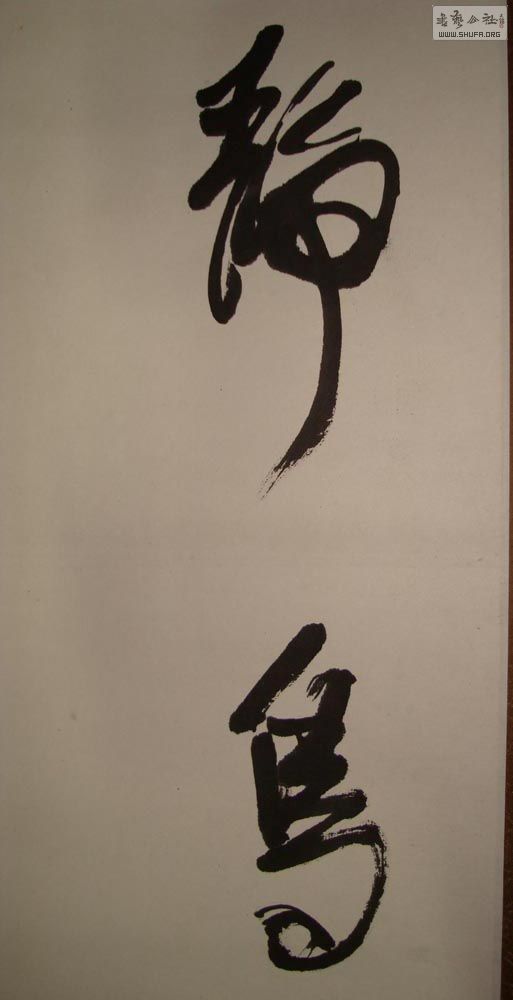 書藝公社
WWW.SHUFA.ORG
靜
鳥